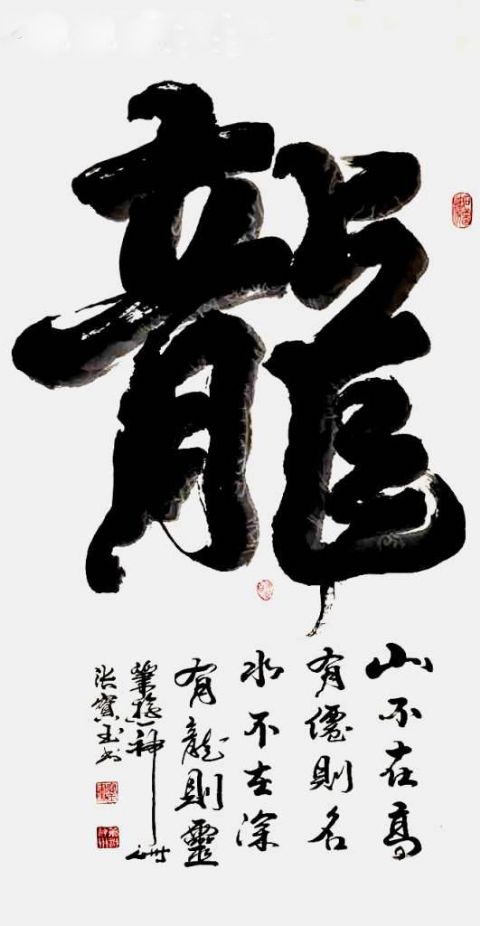 龍
山不在高
有僊則名
水不在深
有龍則靈
筆遊神州
張寶玉書